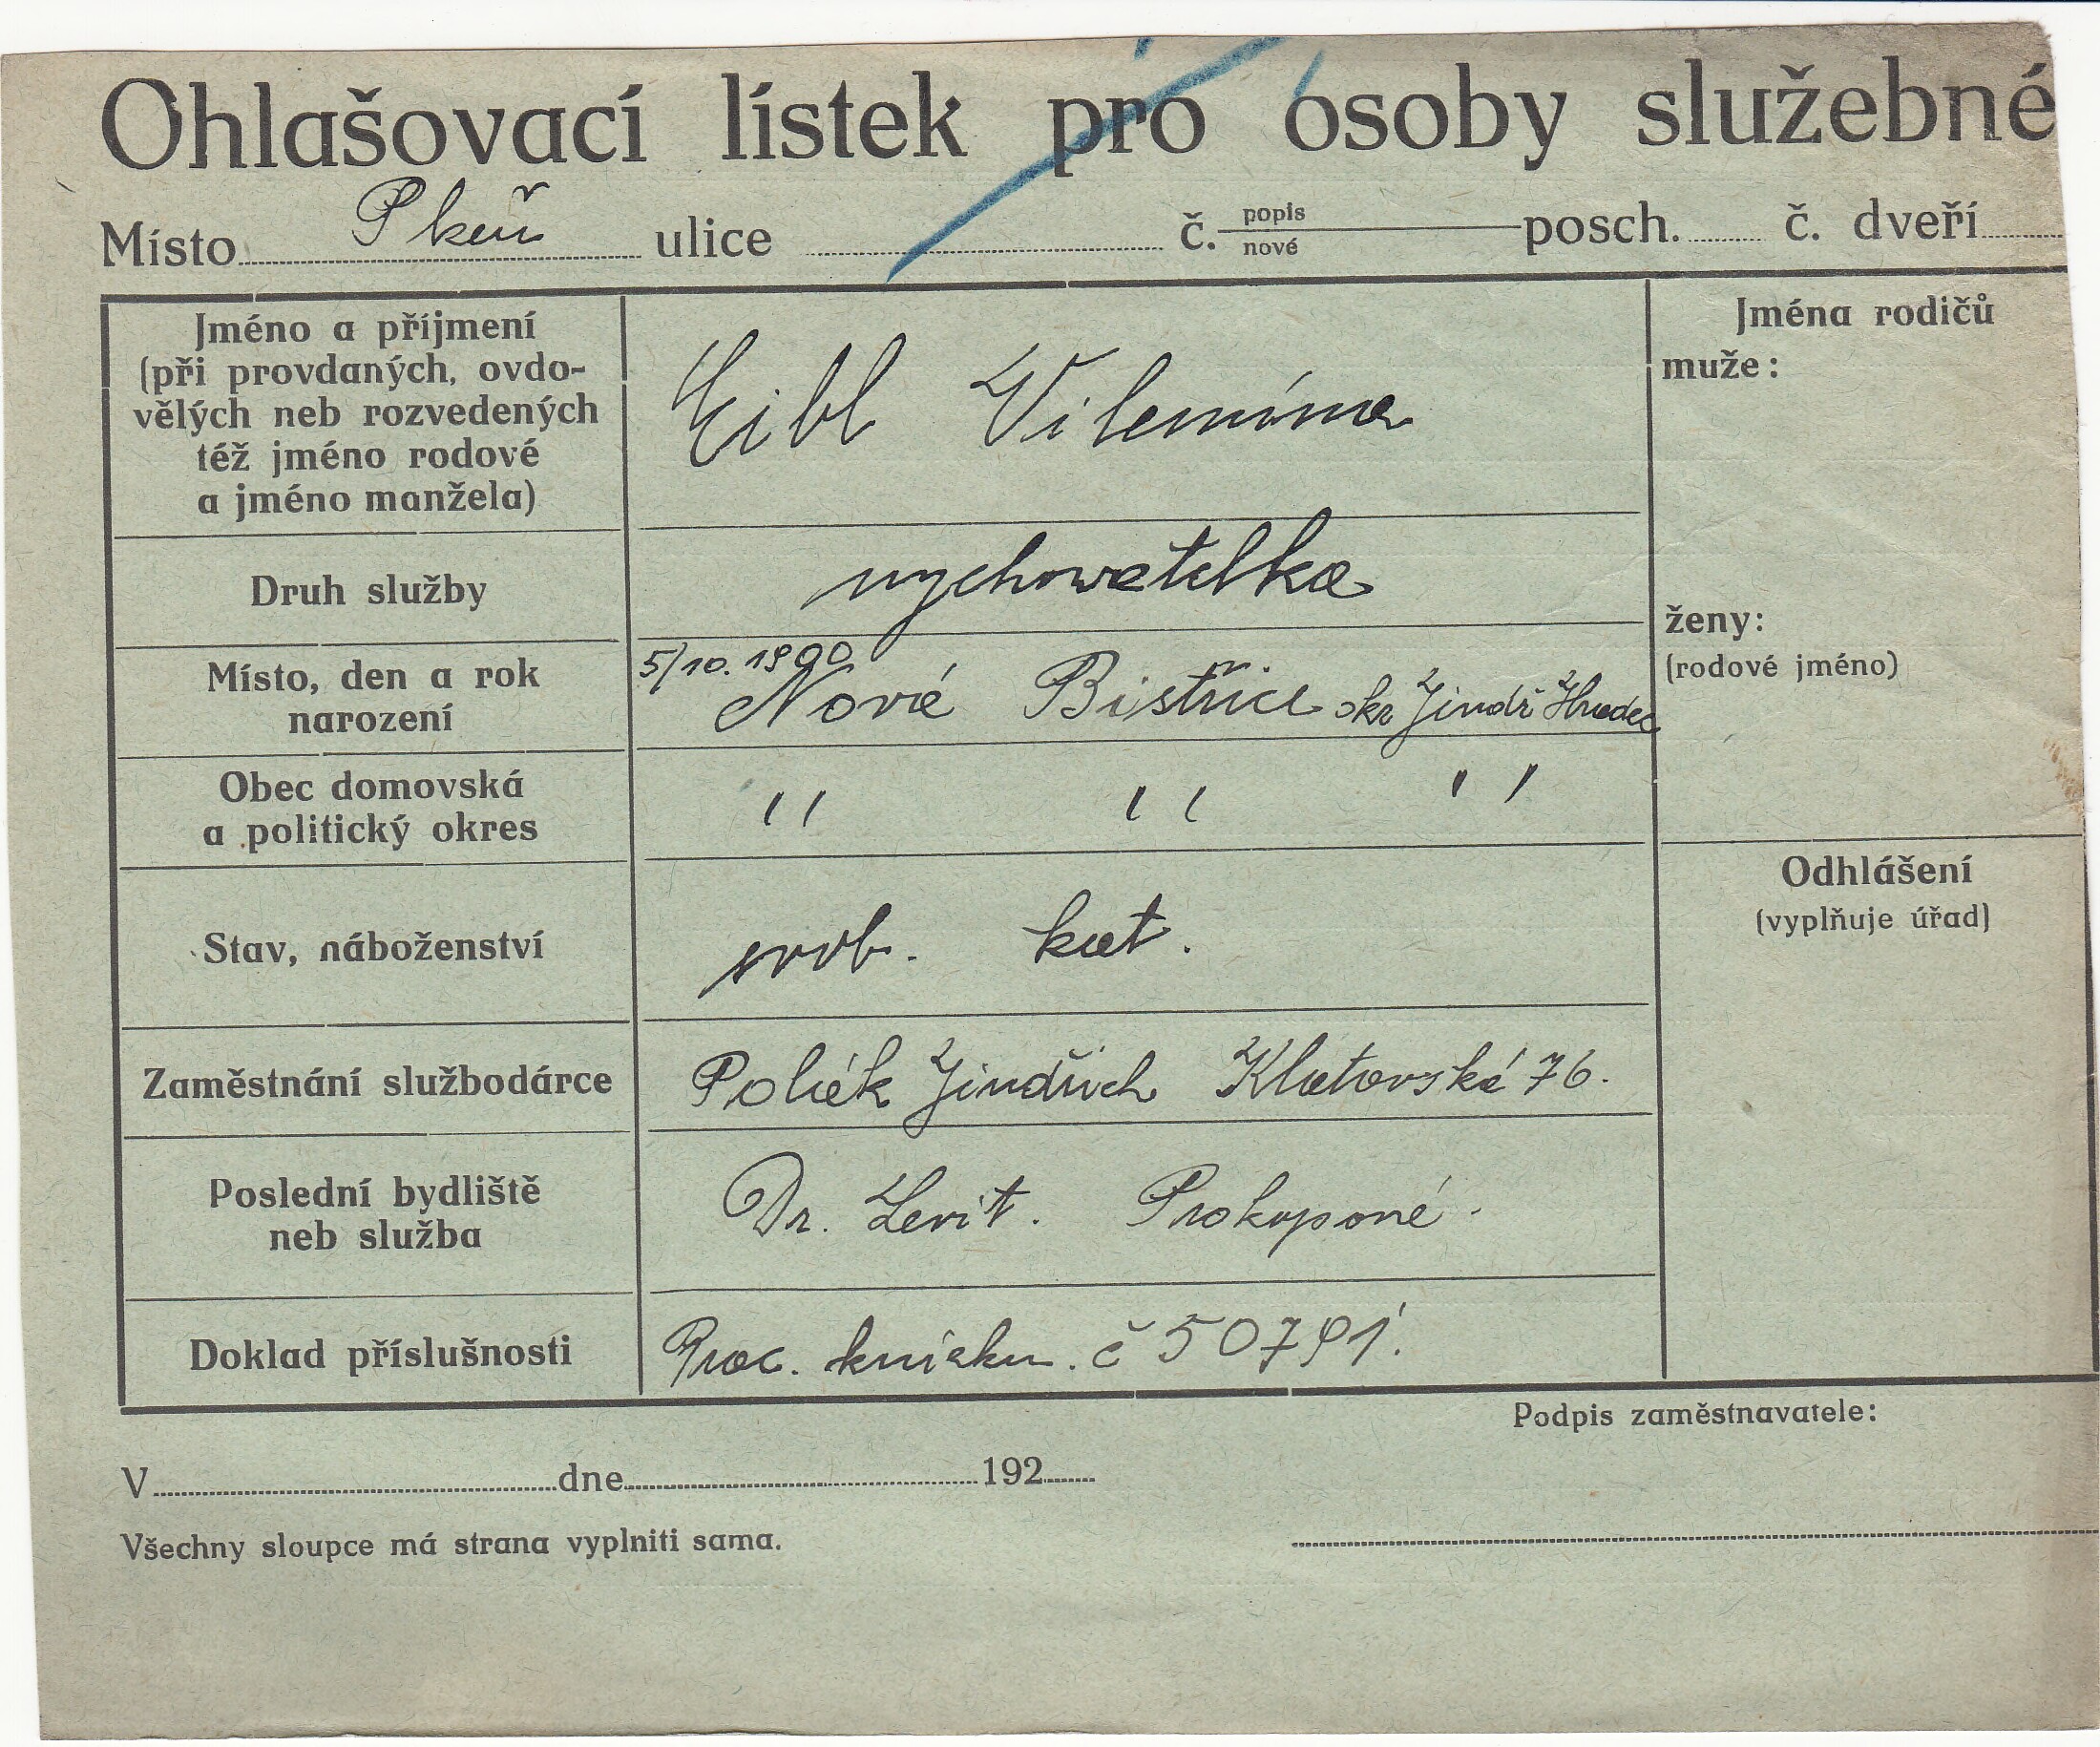 Ohlašovací lístek pro osoby služebné
Místo Plzeň ulice č. popis nové posch. č. dveří
Jméno a příjmení
(při provdaných, ovdo-
vělých neb rozvedených
též jméno rodové
a jméno manžela)
Eibl Vilemína
Jména rodičů
muže:
ženy:
(rodové jméno)
Druh služby
vychovatelka
Místo, den a rok
narození
5/10. 1900
Nová Bistřice okr Jindř Hradec
Obec domovská
a politický okres
" " "
Stav, náboženství
svob. kat.
Odhlášení
(vyplňuje úřad)
Zaměstnání službodárce
Polák Jindřich Klatovská 76.
Poslední bydliště
neb služba
Dr. Levit. Prokopova.
Doklad příslušnosti
Prac. knížku. č 50791.
Podpis zaměstnavatele:
V dne 192
Všechny sloupce má strana vyplniti sama.